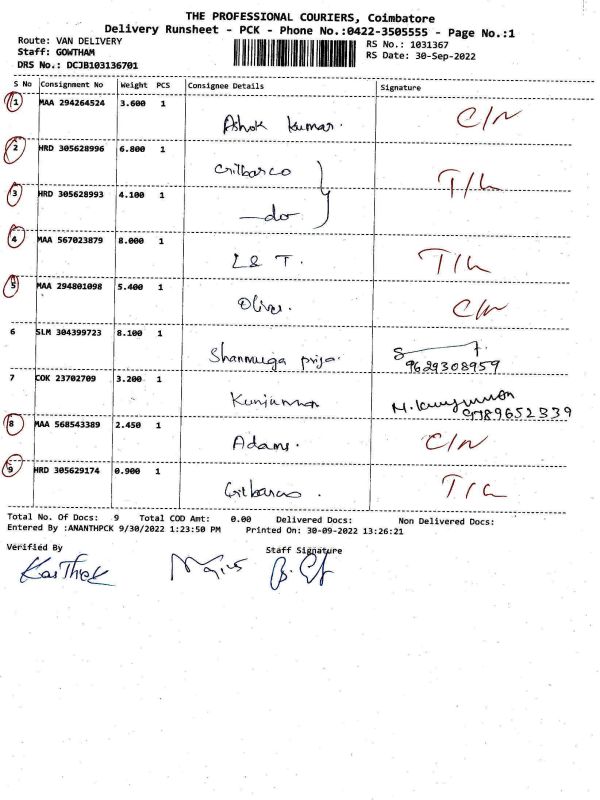 THE PROFESSIONAL COURIERS, Coimbatore
Delivery Runsheet - PCK - Phone No.:0422-3505555 - Page No.:1
Route: VAN DELIVERY
Staff: GOWTHAM
DRS No.: DCJB103136701
RS No.: 1031367
RS Date: 30-Sep-2022
S No Consignment No Weight PCS Consignee Details Signature
1 MAA 294264524 3.600 1 Ashok Kumar. C/N
2 HRD 305628996 6.800 1 Gilbarco T/L
3 HRD 305628993 4.100 1 —do—
4 MAA 567023879 8.000 1 L & T. T/L
5 MAA 294801098 5.400 1 Oliver. C/N
6 SLM 304399723 8.100 1 Shanmuga priya. 9629308959
7 COK 23702709 3.200 1 Kunjumon M. Kunjumon
8 MAA 568543389 2.450 1 Adams. C/N
9 HRD 305629174 0.900 1 Gilbarco. T/L
Total No. Of Docs: 9 Total COD Amt: 0.00 Delivered Docs: Non Delivered Docs:
Entered By :ANANTHPCK 9/30/2022 1:23:50 PM Printed On: 30-09-2022 13:26:21
Verified By Staff Signature
Karthek